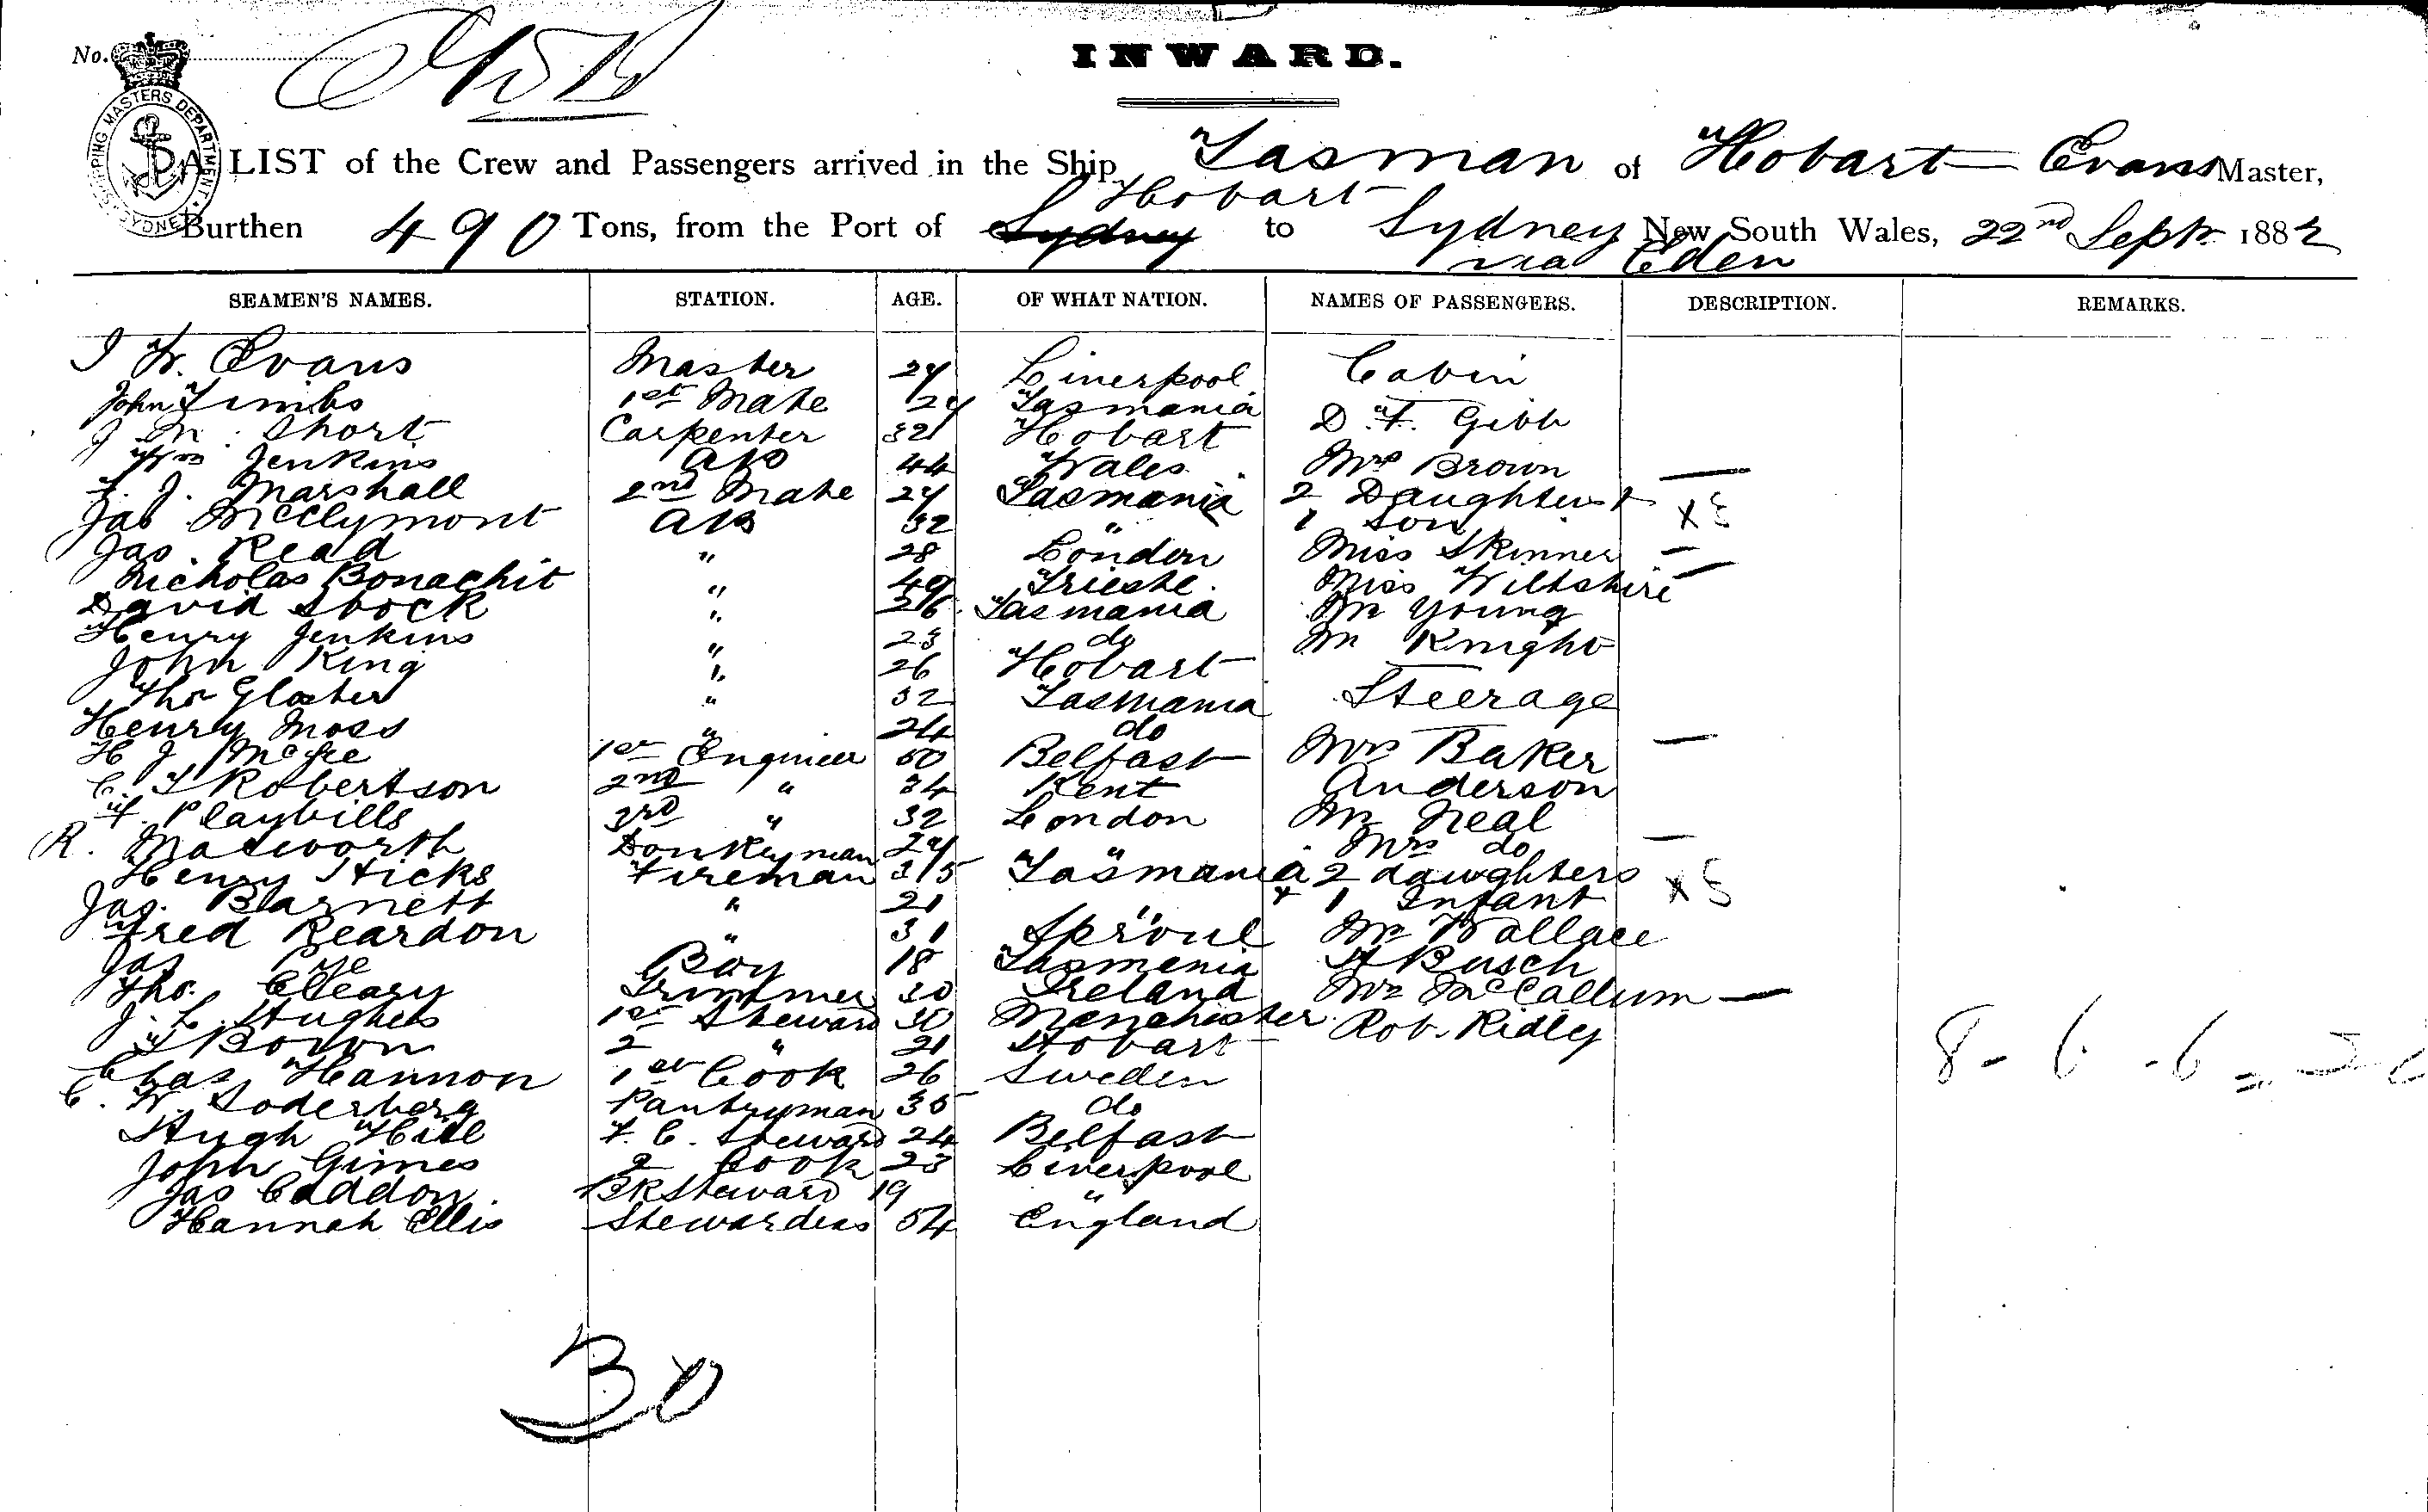 No.
INWARD.
SHIPPING MASTERS DEPARTMENT SYDNEY
A LIST of the Crew and Passengers arrived in the Ship Tasman of Hobart Evans Master,
Hobart
Burthen 490 Tons, from the Port of Sydney to Sydney New South Wales, 22nd Sept. 1882
via Eden
SEAMEN'S NAMES. STATION. AGE. OF WHAT NATION. NAMES OF PASSENGERS. DESCRIPTION. REMARKS.
J W. Evans Master Liverpool Cabin
John Timbs 1st Mate Tasmania
J M. Short Carpenter 32 Hobart D. F. Gibb
Wm Jenkins AB 44 Wales Mrs Brown
J. Marshall 2nd Mate Tasmania 2 Daughters +
Jas McClymont AB 32 " 1 Son
Jas. Read " 28 London Miss Skinner
Nicholas Bonachit " 49 Trieste. Miss Wiltshire
David Stock " 26 Tasmania Mr Young
Henry Jenkins " 23 do Mr Knight
John King " 26 Hobart
Thos Gloster " 32 Tasmania Steerage
Henry Moss " 24 do
H J McGee 1st Engineer 50 Belfast Mrs Baker
C. T Robertson 2nd " 34 Kent Anderson
F. Playbills 3rd " 32 London Mr Neal
R. Donkeyman " Mrs do
Henry Hicks Fireman 35 Tasmania 2 daughters
Jas. Barnett " 21 " + 1 Infant
Fred Reardon " 31 Mr Wallace
Jas Pye Boy 18 Tasmania H Busch
Thos. Cleary Trimmer 30 Ireland Mrs McCallum
J. L. Hughes 1st Steward 30 Manchester Rob. Ridley
2 " 21 Hobart
Chas Hannon 1st Cook 26 Sweden
C. W. Soderberg Pantryman 35 do
Hugh Hill F. C. Steward 24 Belfast
John Gimes 2 Cook 23 Liverpool
Jas Caddon. BK Steward 19 "
Hannah Ellis Stewardess 54 England
8 - 6 - 6 =
30